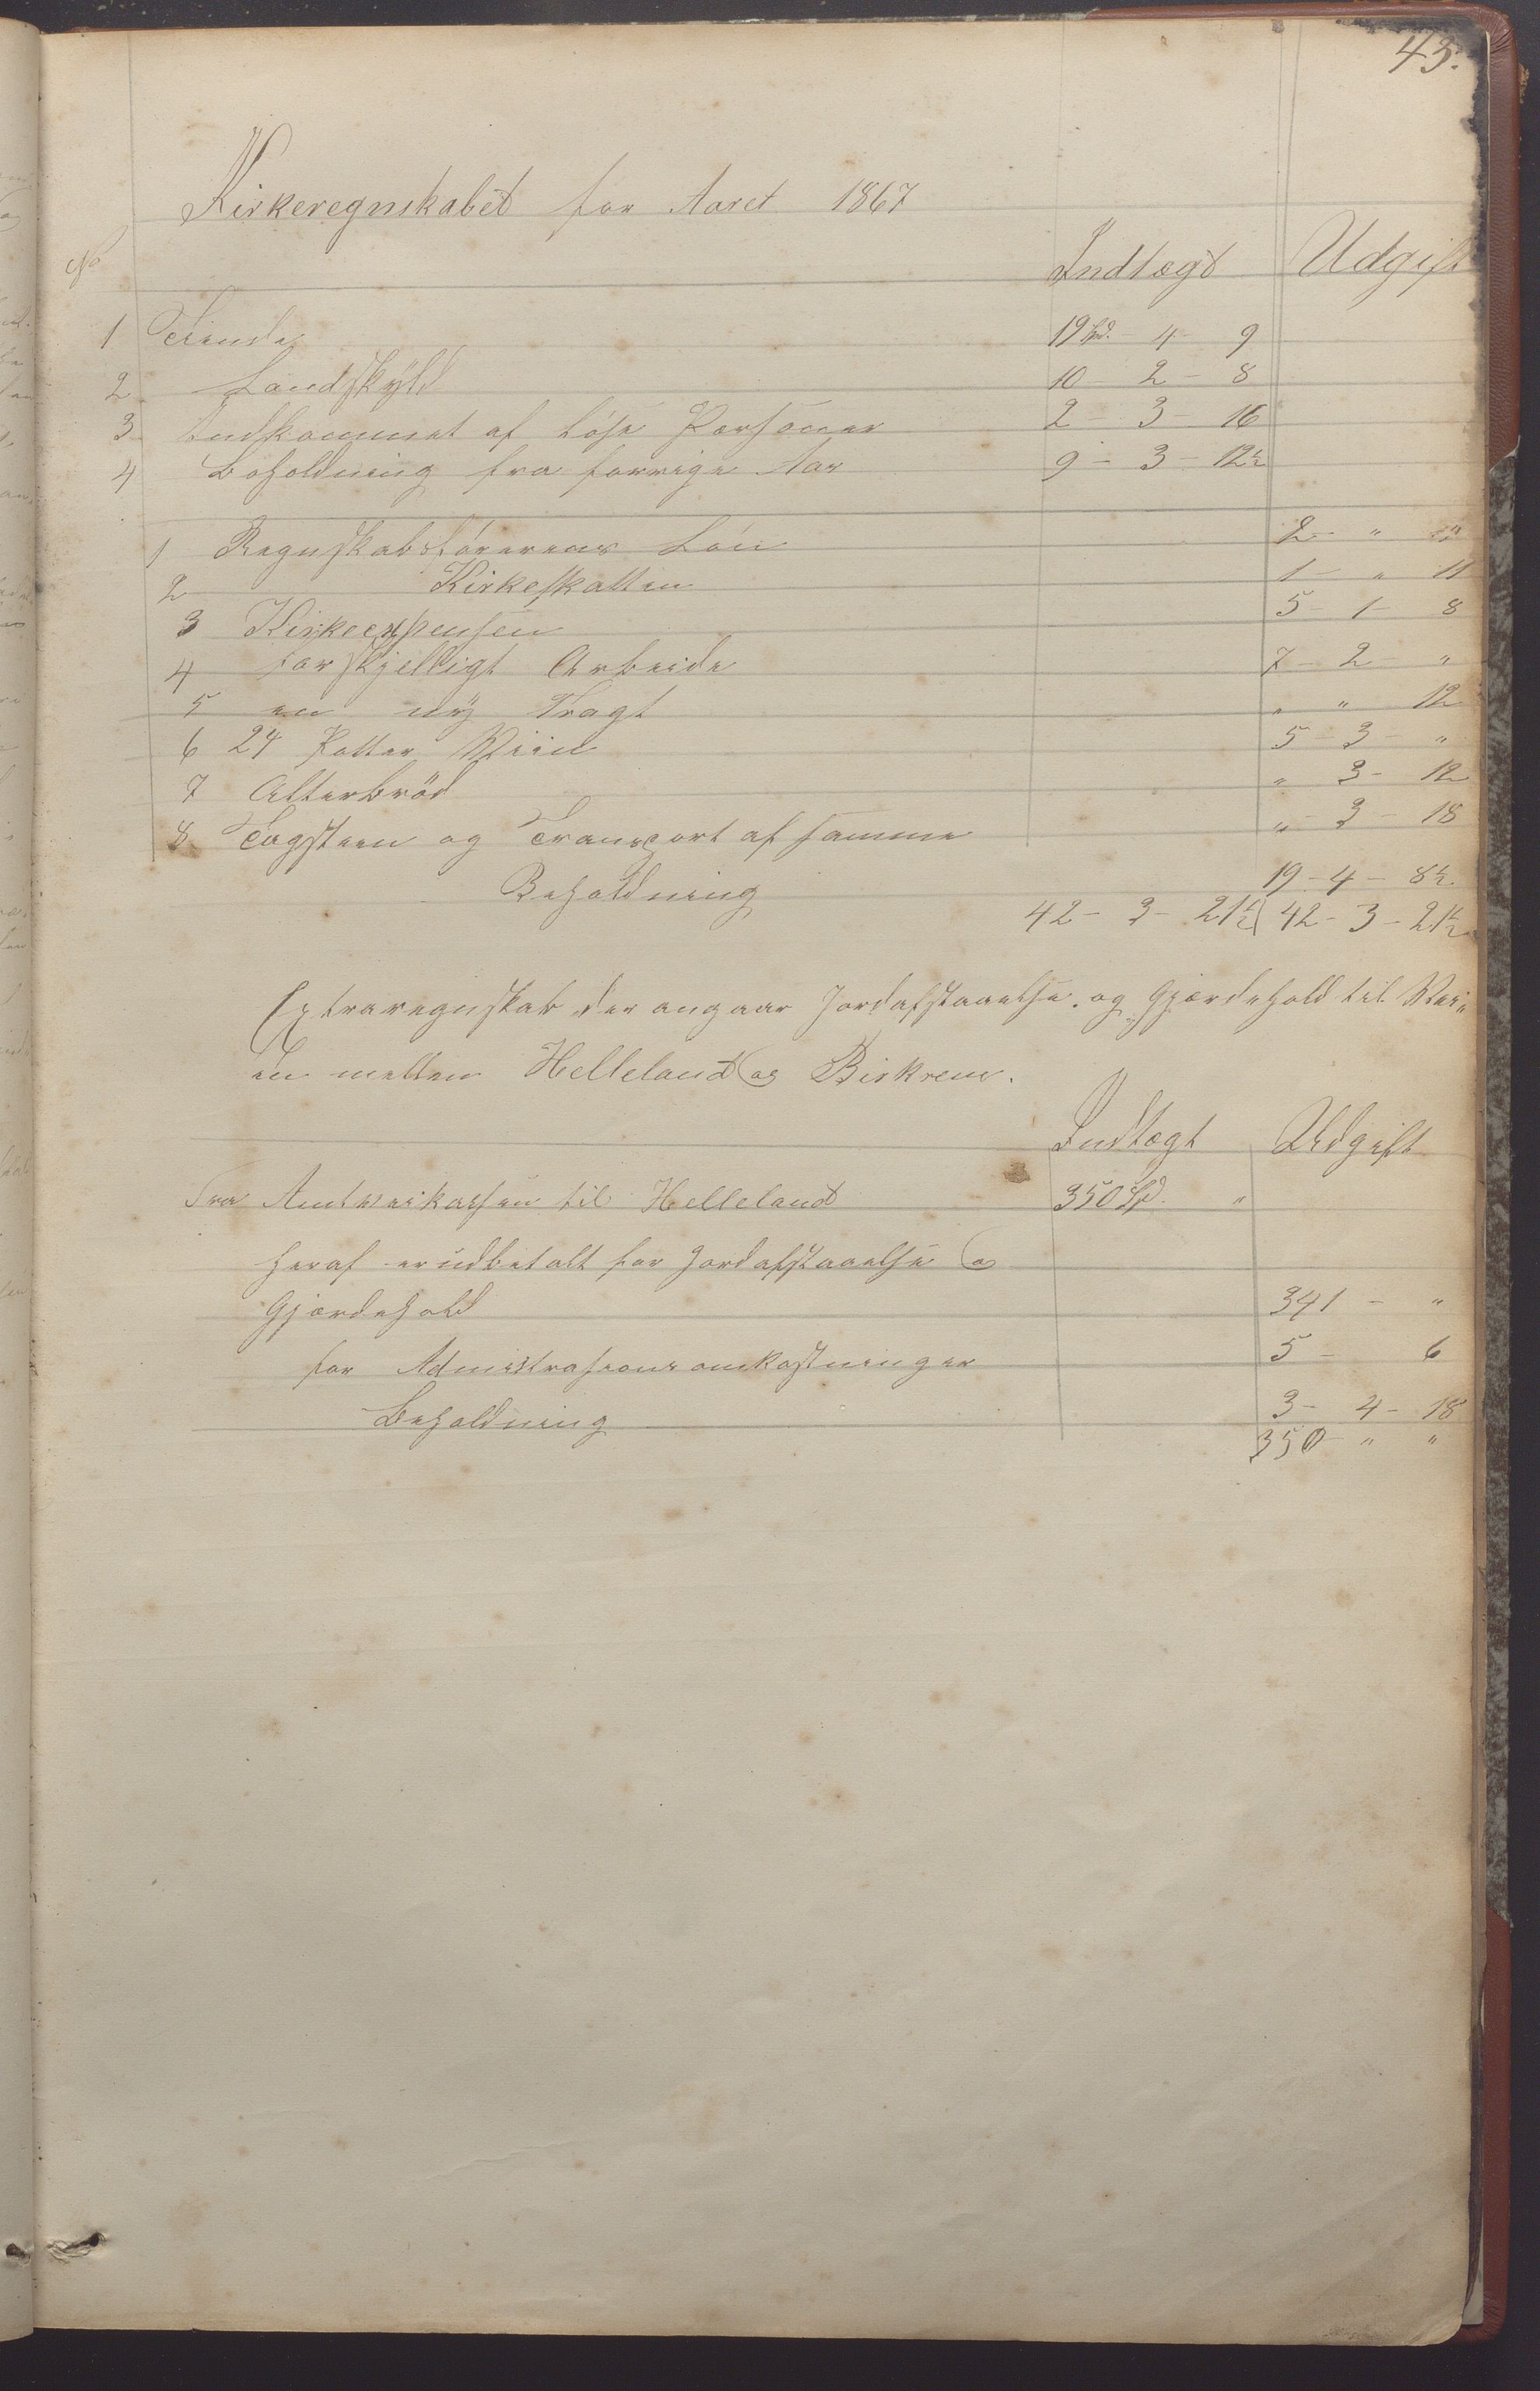 43.
Kirkeregnskabet for Aaret 1867
No Indtægt Udgift
1 Tiende 19 Spd. - 4 - 9
2 Landskyld 10 - 2 - 8
3 Indkommet af løse Personer 2 - 3 - 16
4 Beholdning fra forrige Aar 9 - 3 - 12½
1 Regnskabsførerens Løn 2 - " "
2 Kirkeskatten 1 - " 11
3 Kirkeexpensen 5 - 1 - 8
4 forskjelligt Arbeide 7 - 2 "
5 en ny Tragt " " 12
6 24 Potter Viin 5 - 3 - "
7 Alterbrød " 3 - 12
8 Tagsteen og Transport af samme " - 3 - 18
Beholdning 19 - 4 - 8½
42 - 3 - 21½ 42 - 3 - 21½
Extraregnskab der angaar Jordafstaaelse. og Gjærdehold til Vei"
en mellem Helleland og Birkrem.
Indtægt Udgift
Fra Amtsveikassen til Helleland 350 Spd. "
heraf er udbetalt for Jordafstaaelse og
Gjærdehold 341 - "
for Admistrasionsomkostninger 5 - 6
Beholdning 3 - 4 - 18
350 - " "